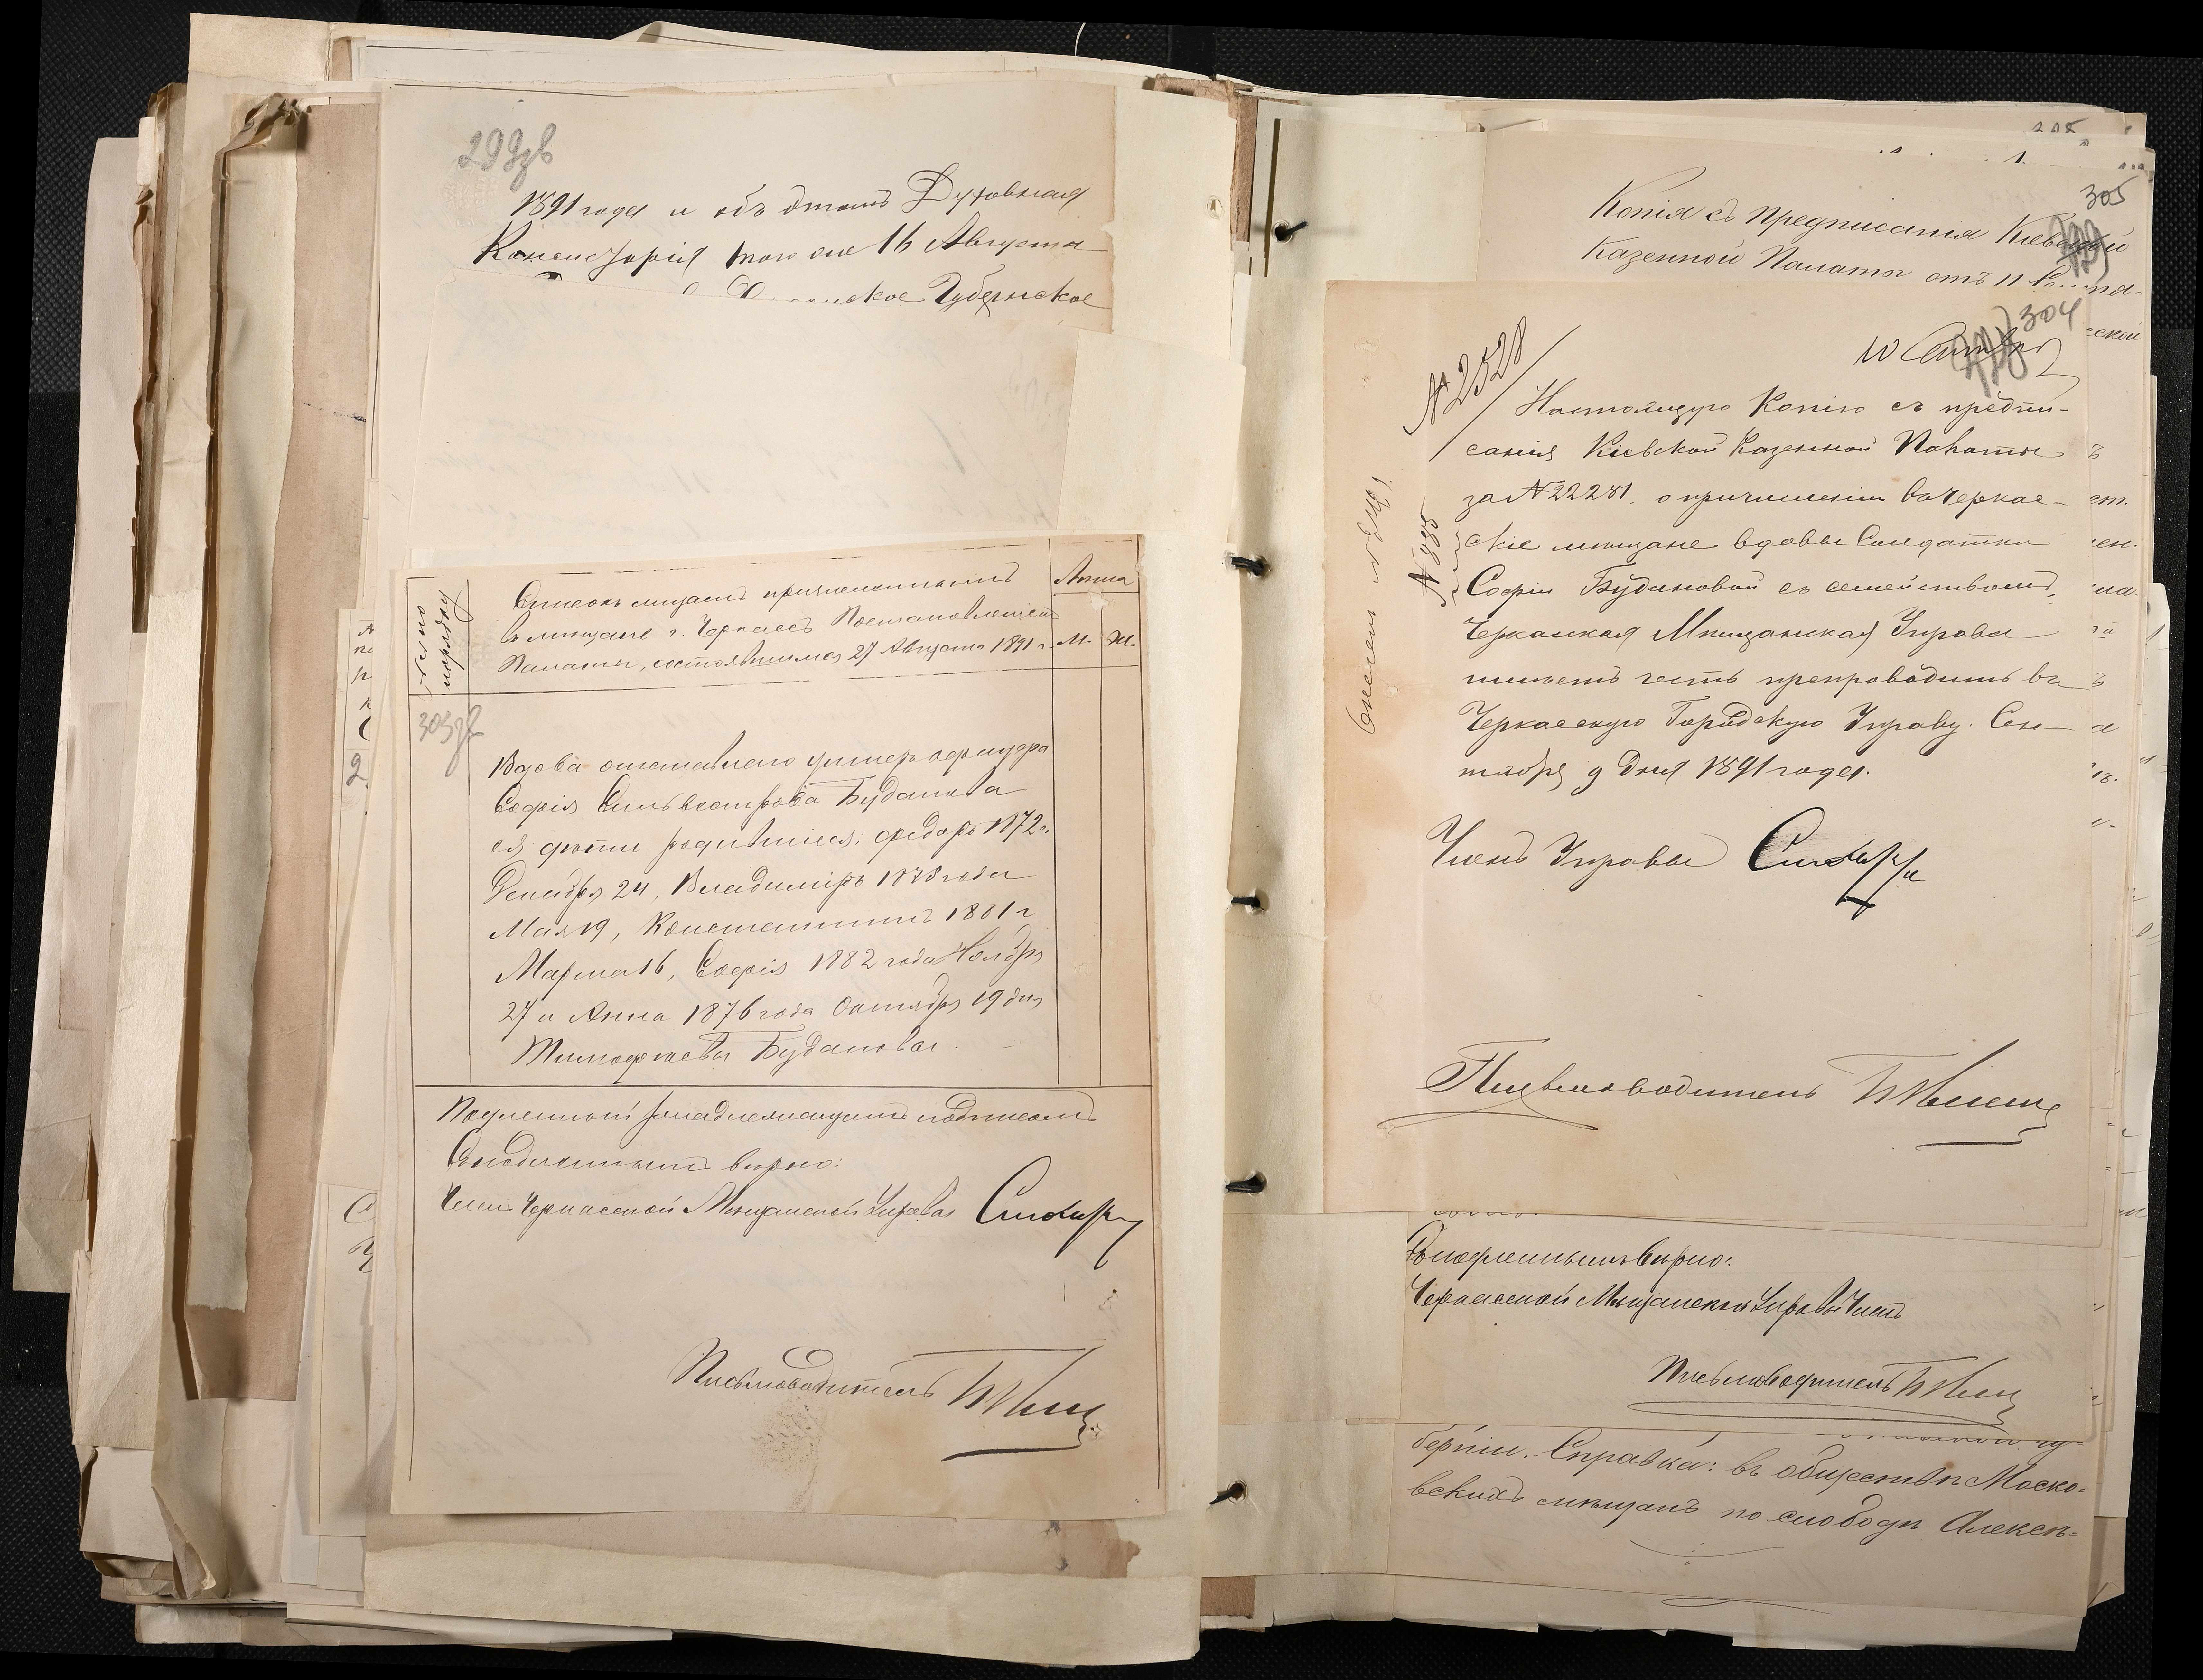 299зв
1891 года и объ этомъ Духовная
Консисторія того же 16 Августа
Губернское
Число по порядку
Списокъ лицамъ причисленнымъ
въ мещане г. Черкассъ Постановленіемъ
Палаты, состоявшимся 27 Августа 1891 г.
Лѣта
М.
Ж.
303зв
Вдова отставнаго унтеръ офицера
Софія Сильвестрова Буданова
ея дѣти родившіеся: Федоръ 1872 г.
Декабря 24, Владиміръ 1878 года
Мая 19, Константинъ 1881 г
Марта 16, Софія 1882 года Ноября
27 и Анна 1876 года Октября 19 дня
Тимофѣевы Будановы.
Подлинный за надлежащимъ подписомъ
Съ подлиннымъ вѣрно:
Членъ Черкасской Мѣщанской Управы
Письмоводитель
305
Копія съ предписанія Кіевской
Казенной Палаты отъ 11
304
10
№ 2528
Настоящую Копію съ предпи-
санія Кіевской Казенной Палаты
за № 22281. о причисленіи въ Черкас-
скіе мѣщане вдовы Солдатки
Софіи Будановой съ семействомъ,
Черкасская Мѣщанская Управа
имѣетъ честь препроводить въ
Черкасскую Городскую Управу. Сен-
тября 9 дня 1891 года.
Членъ Управы
Письмоводитель
Съ подлиннымъ вѣрно:
Черкасской Мѣщанской Управы Членъ
Письмоводитель
берніи. Справка: въ обществѣ Моско-
вскихъ мѣщанъ по слободѣ Алексѣ-